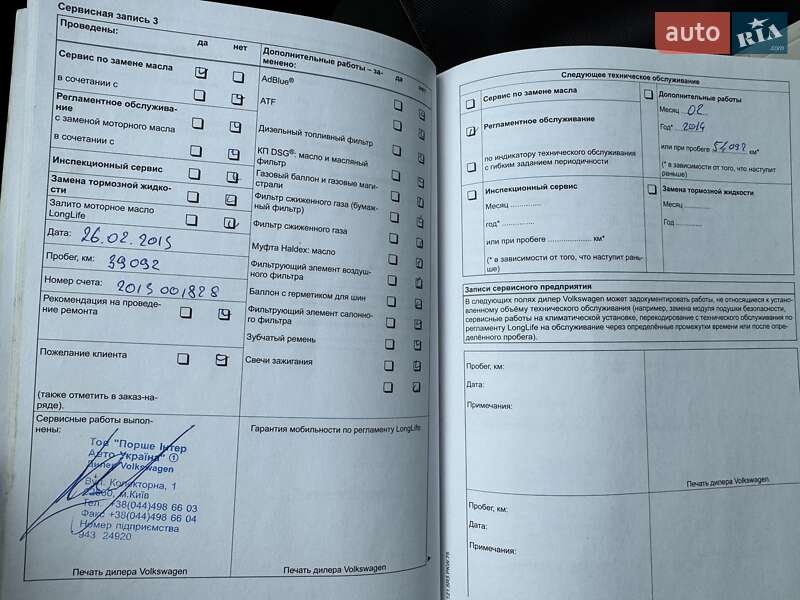 Сервисная запись 3
Проведены:
да
нет
Сервис по замене масла
в сочетании с
Регламентное обслужива-
ние
с заменой моторного масла
в сочетании с
Инспекционный сервис
Замена тормозной жидко-
сти
Залито моторное масло
LongLife
Дата:
26.02.2015
Пробег, км:
39092
Номер счета:
2015 001828
Рекомендация на проведе-
ние ремонта
Пожелание клиента
(также отметить в заказ-на-
ряде).
Дополнительные работы – за-
менено:
да
нет
AdBlue®
ATF
Дизельный топливный фильтр
КП DSG®: масло и масляный
фильтр
Газовый баллон и газовые маги-
страли
Фильтр сжиженного газа (бумаж-
ный фильтр)
Фильтр сжиженного газа
Муфта Haldex: масло
Фильтрующий элемент воздуш-
ного фильтра
Баллон с герметиком для шин
Фильтрующий элемент салонно-
го фильтра
Зубчатый ремень
Свечи зажигания
Сервисные работы выпол-
нены:
Тов "Порше Інтер
Авто Україна" 1
Дилер Volkswagen
Вул. Колекторна, 1
м.Київ
Тел. +38(044)498 66 03
Факс +38(044)498 66 04
Номер підприємства
943 24920
Печать дилера Volkswagen
Гарантия мобильности по регламенту LongLife
Печать дилера Volkswagen
auto RIA .com
Следующее техническое обслуживание
Сервис по замене масла
Регламентное обслуживание
по индикатору технического обслуживания
с гибким заданием периодичности
Инспекционный сервис
Месяц
год*
или при пробеге км*
(* в зависимости от того, что наступит рань-
ше)
Дополнительные работы
Месяц 02
Год*
или при пробеге 54092 км*
(* в зависимости от того, что наступит
раньше)
Замена тормозной жидкости
Месяц
Год
Записи сервисного предприятия
В следующих полях дилер Volkswagen может задокументировать работы, не относящиеся к уста-
новленному объёму технического обслуживания (например, замена модуля подушки безопасности,
сервисные работы на климатической установке, перекодирование с технического обслуживания по
регламенту LongLife на обслуживание через определённые промежутки времени или после опре-
делённого пробега).
Пробег, км:
Дата:
Примечания:
Печать дилера Volkswagen.
Пробег, км:
Дата:
Примечания: